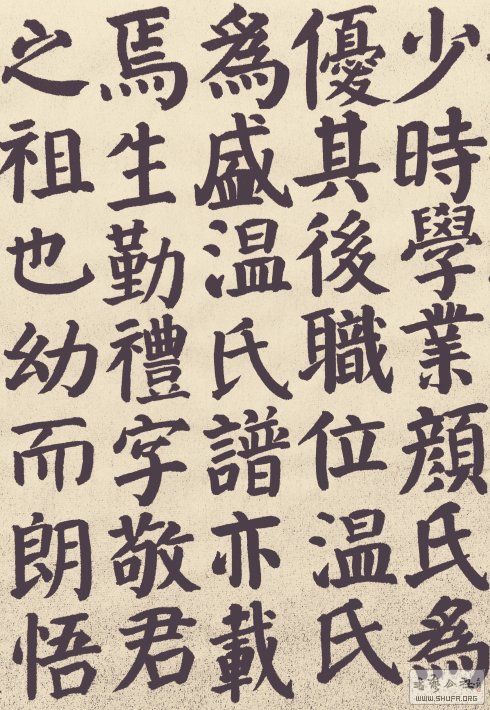 少時學業顏氏為
優其後職位溫氏
為盛溫氏譜亦載
焉生勤禮字敬君
之祖也幼而朗悟
WWW.SHUFA.ORG